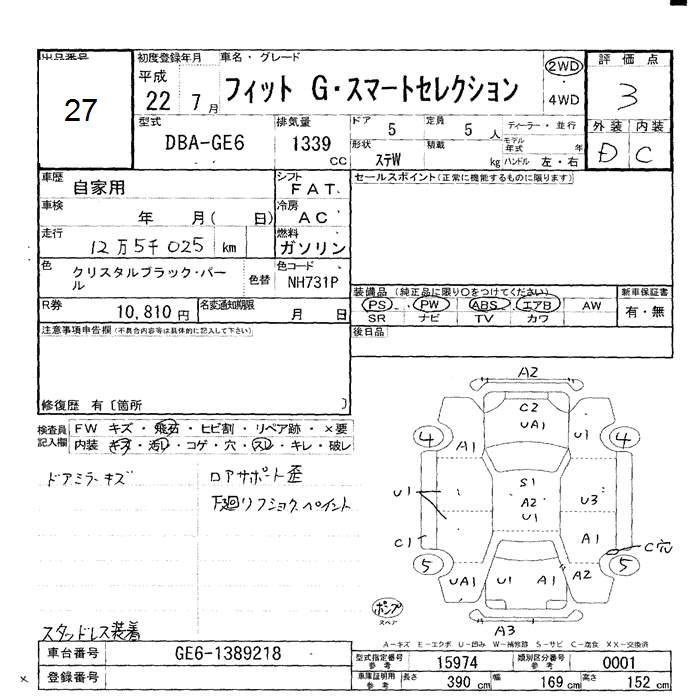 出品番号
27
初度登録年月
平成
22 7月
車名・グレード
フィット G・スマートセレクション
2WD
4WD
評価点
3
外装 内装
D C
型式
DBA-GE6
排気量
1339
CC
ドア 5
定員 5 人
形状 ステW
積載 kg
ディーラー・並行
モデル年式 年
ハンドル 左・右
車歴
自家用
シフト
FAT
セールスポイント(正常に機能するものに限ります)
車検
年 月( 日)
冷房
AC
走行
12万5千025 km
燃料
ガソリン
色
クリスタルブラック・パール
色替
色コード
NH731P
装備品 (純正品に限り○をつけてください)
PS PW ABS エアB AW
SR ナビ TV カワ
新車保証書
有・無
R券
10,810 円
名変通知期限
月 日
後日品
注意事項申告欄(不具合内容等は具体的に記入して下さい)
修復歴 有〔箇所 〕
検査員記入欄
FW キズ・飛石・ヒビ割・リペア跡・×要
内装 キズ・汚レ・コゲ・穴・スレ・キレ・破レ
ドアミラーキズ
ロアサポート歪
下廻リフショクペイント
スタッドレス装着
A2
C2
UA1
4
A1
U1
4
S1
A2
U1
U1
U3
C1
A1
C穴
5
UA1
U1
A1
A2
5
ポンプ
スペア
A3
A-キズ E-エクボ U-凹み W-補修跡 S-サビ C-腐食 XX-交換済
車台番号
GE6-1389218
登録番号
型式指定番号
参考
15974
類別区分番号
参考
0001
車庫証明用
参考
長さ 390 cm
幅 169 cm
高さ 152 cm